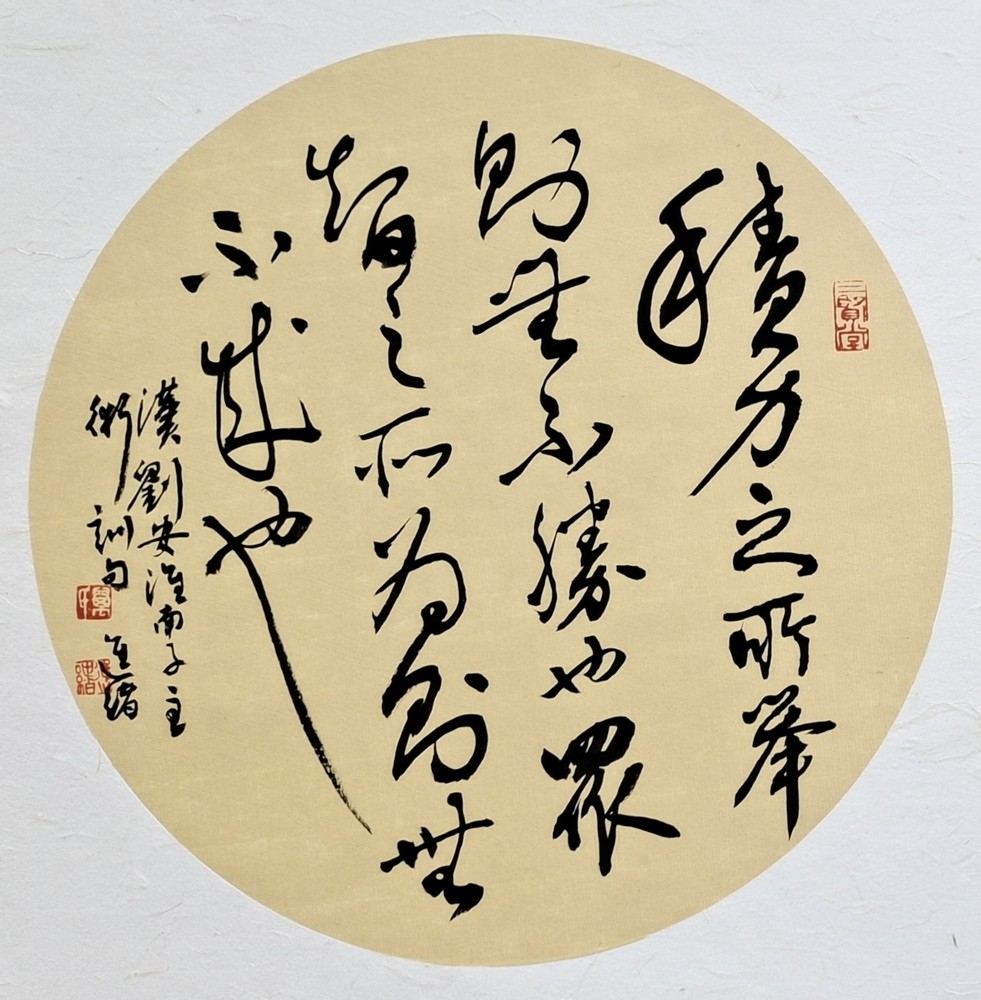 積力之所舉
則無不勝也眾
智之所為則無
不成也
漢劉安淮南子主
術訓句 緒
三賢堂